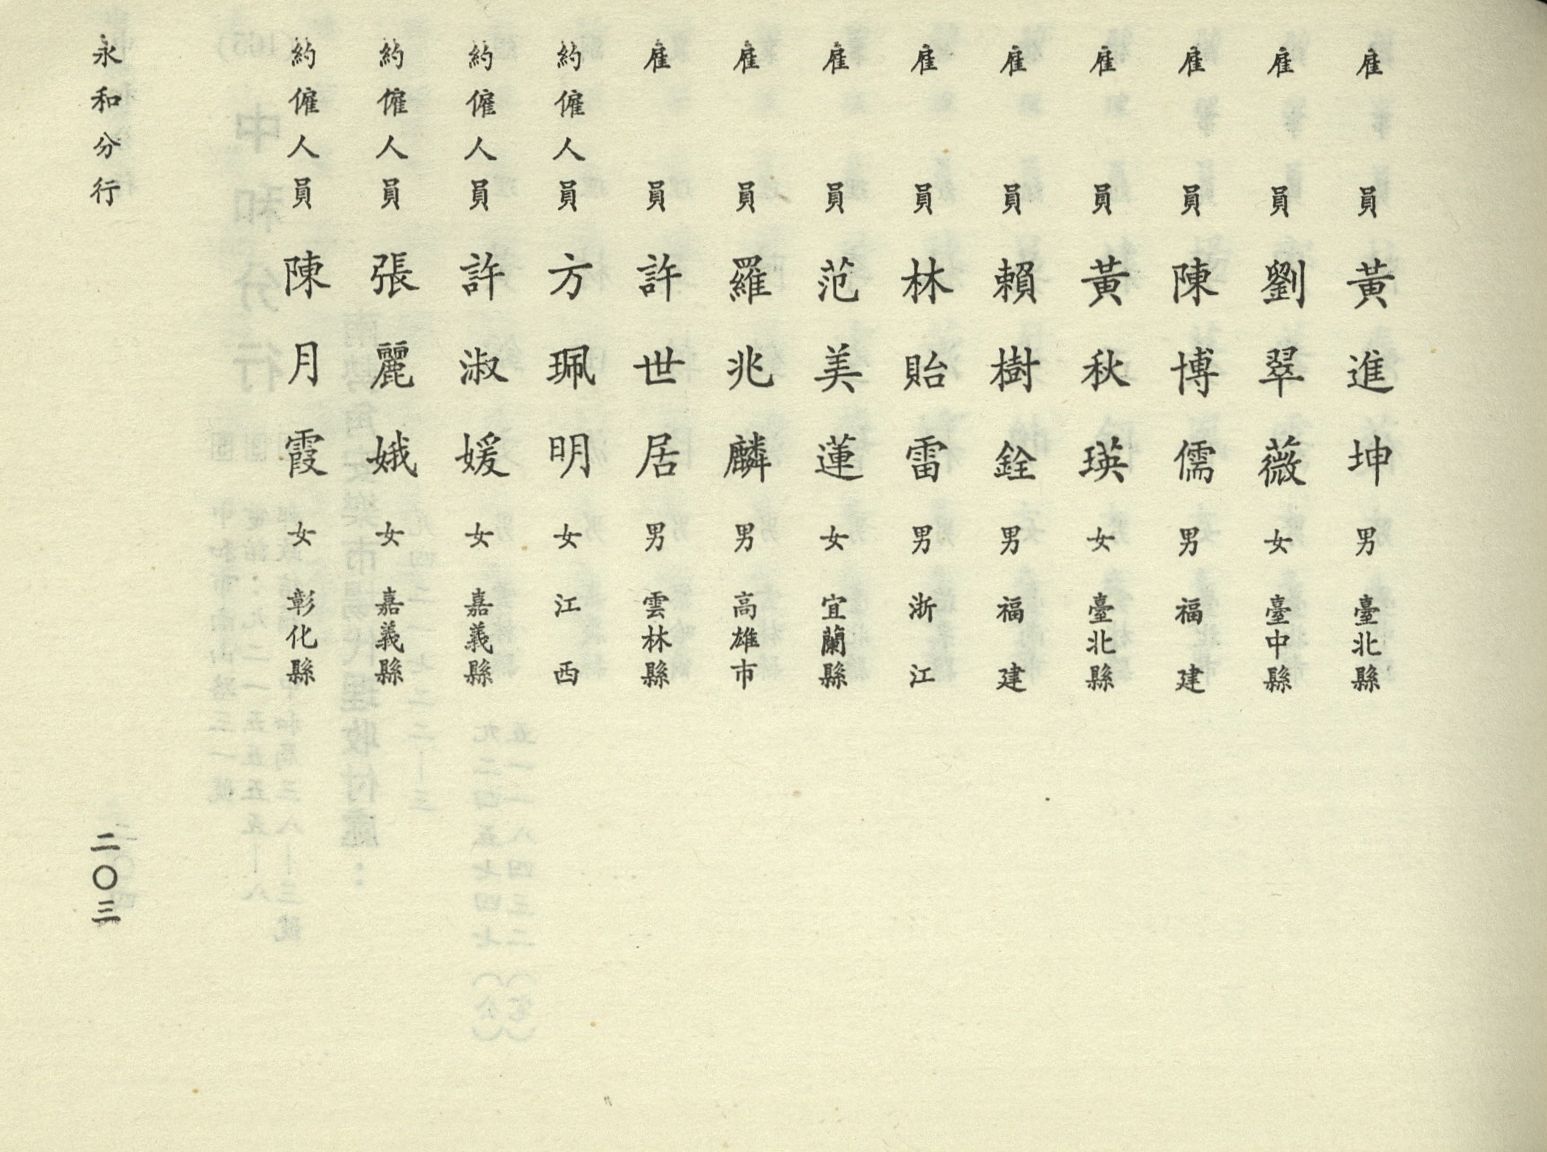 雇員黃進坤男臺北縣
雇員劉翠薇女臺中縣
雇員陳博儒男福建
雇員黃秋瑛女臺北縣
雇員賴樹銓男福建
雇員林貽雷男浙江
雇員范美蓮女宜蘭縣
雇員羅兆麟男高雄市
雇員許世居男雲林縣
約僱人員方珮明女江西
約僱人員許淑媛女嘉義縣
約僱人員張麗娥女嘉義縣
約僱人員陳月霞女彰化縣
永和分行
二〇三